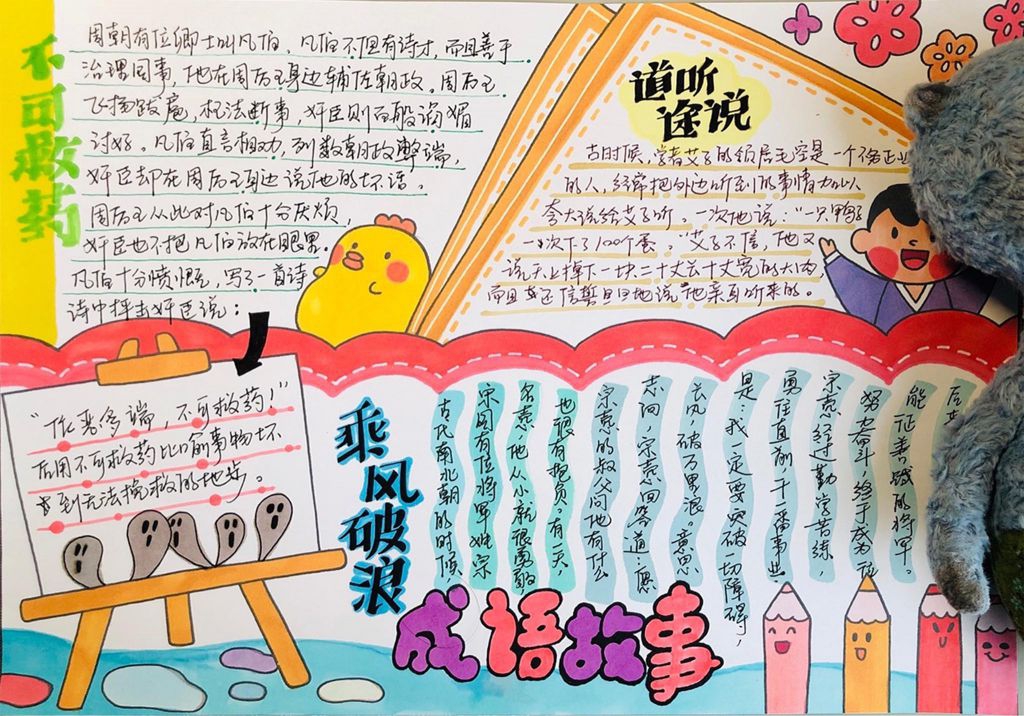 不可救药
周朝有位卿士叫凡伯,凡伯不但有诗才,而且善于
治理国事,他在周厉王身边辅佐朝政。周厉王
飞扬跋扈,枉法断事,奸臣则百般谄媚
讨好。凡伯直言相劝,列数朝政弊端,
奸臣却在周厉王身边说他的坏话。
周厉王从此对凡伯十分厌烦,
奸臣也不把凡伯放在眼里。
凡伯十分愤恨,写了一首诗
诗中抨击奸臣说:
“作恶多端,不可救药!”
后用不可救药比喻事物坏
到无法挽救的地步。
道听
途说
古时候,学者艾子的邻居毛空是一个不务正业
的人,经常把外边听到的事情加以
夸大说给艾子听。一次他说:“一只鸭子
一次下了100个蛋。”艾子不信,他又
说天上掉下一块二十丈长十丈宽的大肉,
而且还信誓旦旦地说“他亲耳听来的。
乘风破浪
古代南北朝的时候,
宋国有位将军姓宗
名悫,他从小就很勇敢,
也很有抱负。有一天,
宗悫的叔父问他有什么
志向,宗悫回答道:“愿
长风,破万里浪。”意思
是:我一定要突破一切障碍,
勇往直前,干一番事业
宗悫经过勤学苦练,
努力奋斗,终于成为一位
能征善战的将军。
成语故事